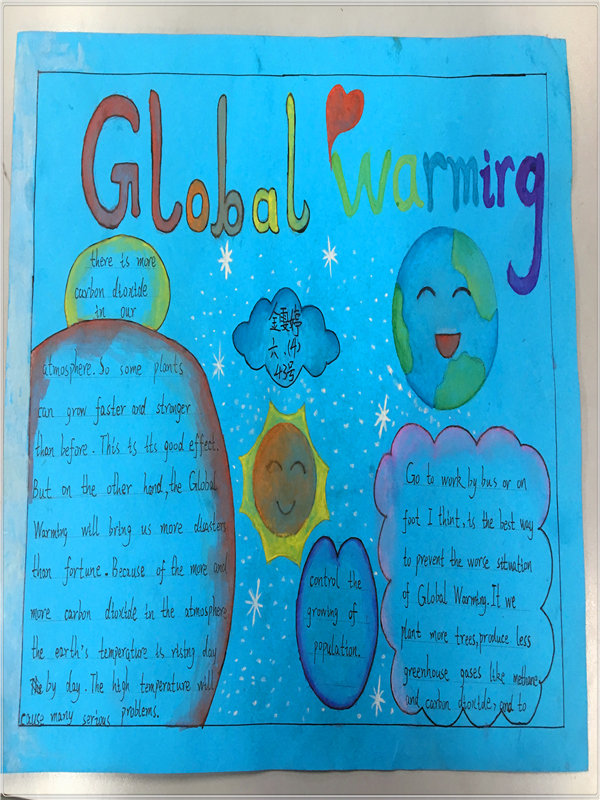 Global Warming
there is more
carbon dioxide
in our
atmosphere. So some plants
can grow faster and stronger
than before. This is its good effect.
But on the other hand, the Global
Warming will bring us more disasters
than fortune. Because of the more and
more carbon dioxide in the atmosphere
the earth's temperature is rising day
by day. The high temperature will
cause many serious problems.
金雯婷
六.(4)
43号
control the
growing of
population.
Go to work by bus or on
foot I think, is the best way
to prevent the worse situation
of Global Warming. If we
plant more trees, produce less
greenhouse gases like methane
and carbon dioxide, and to